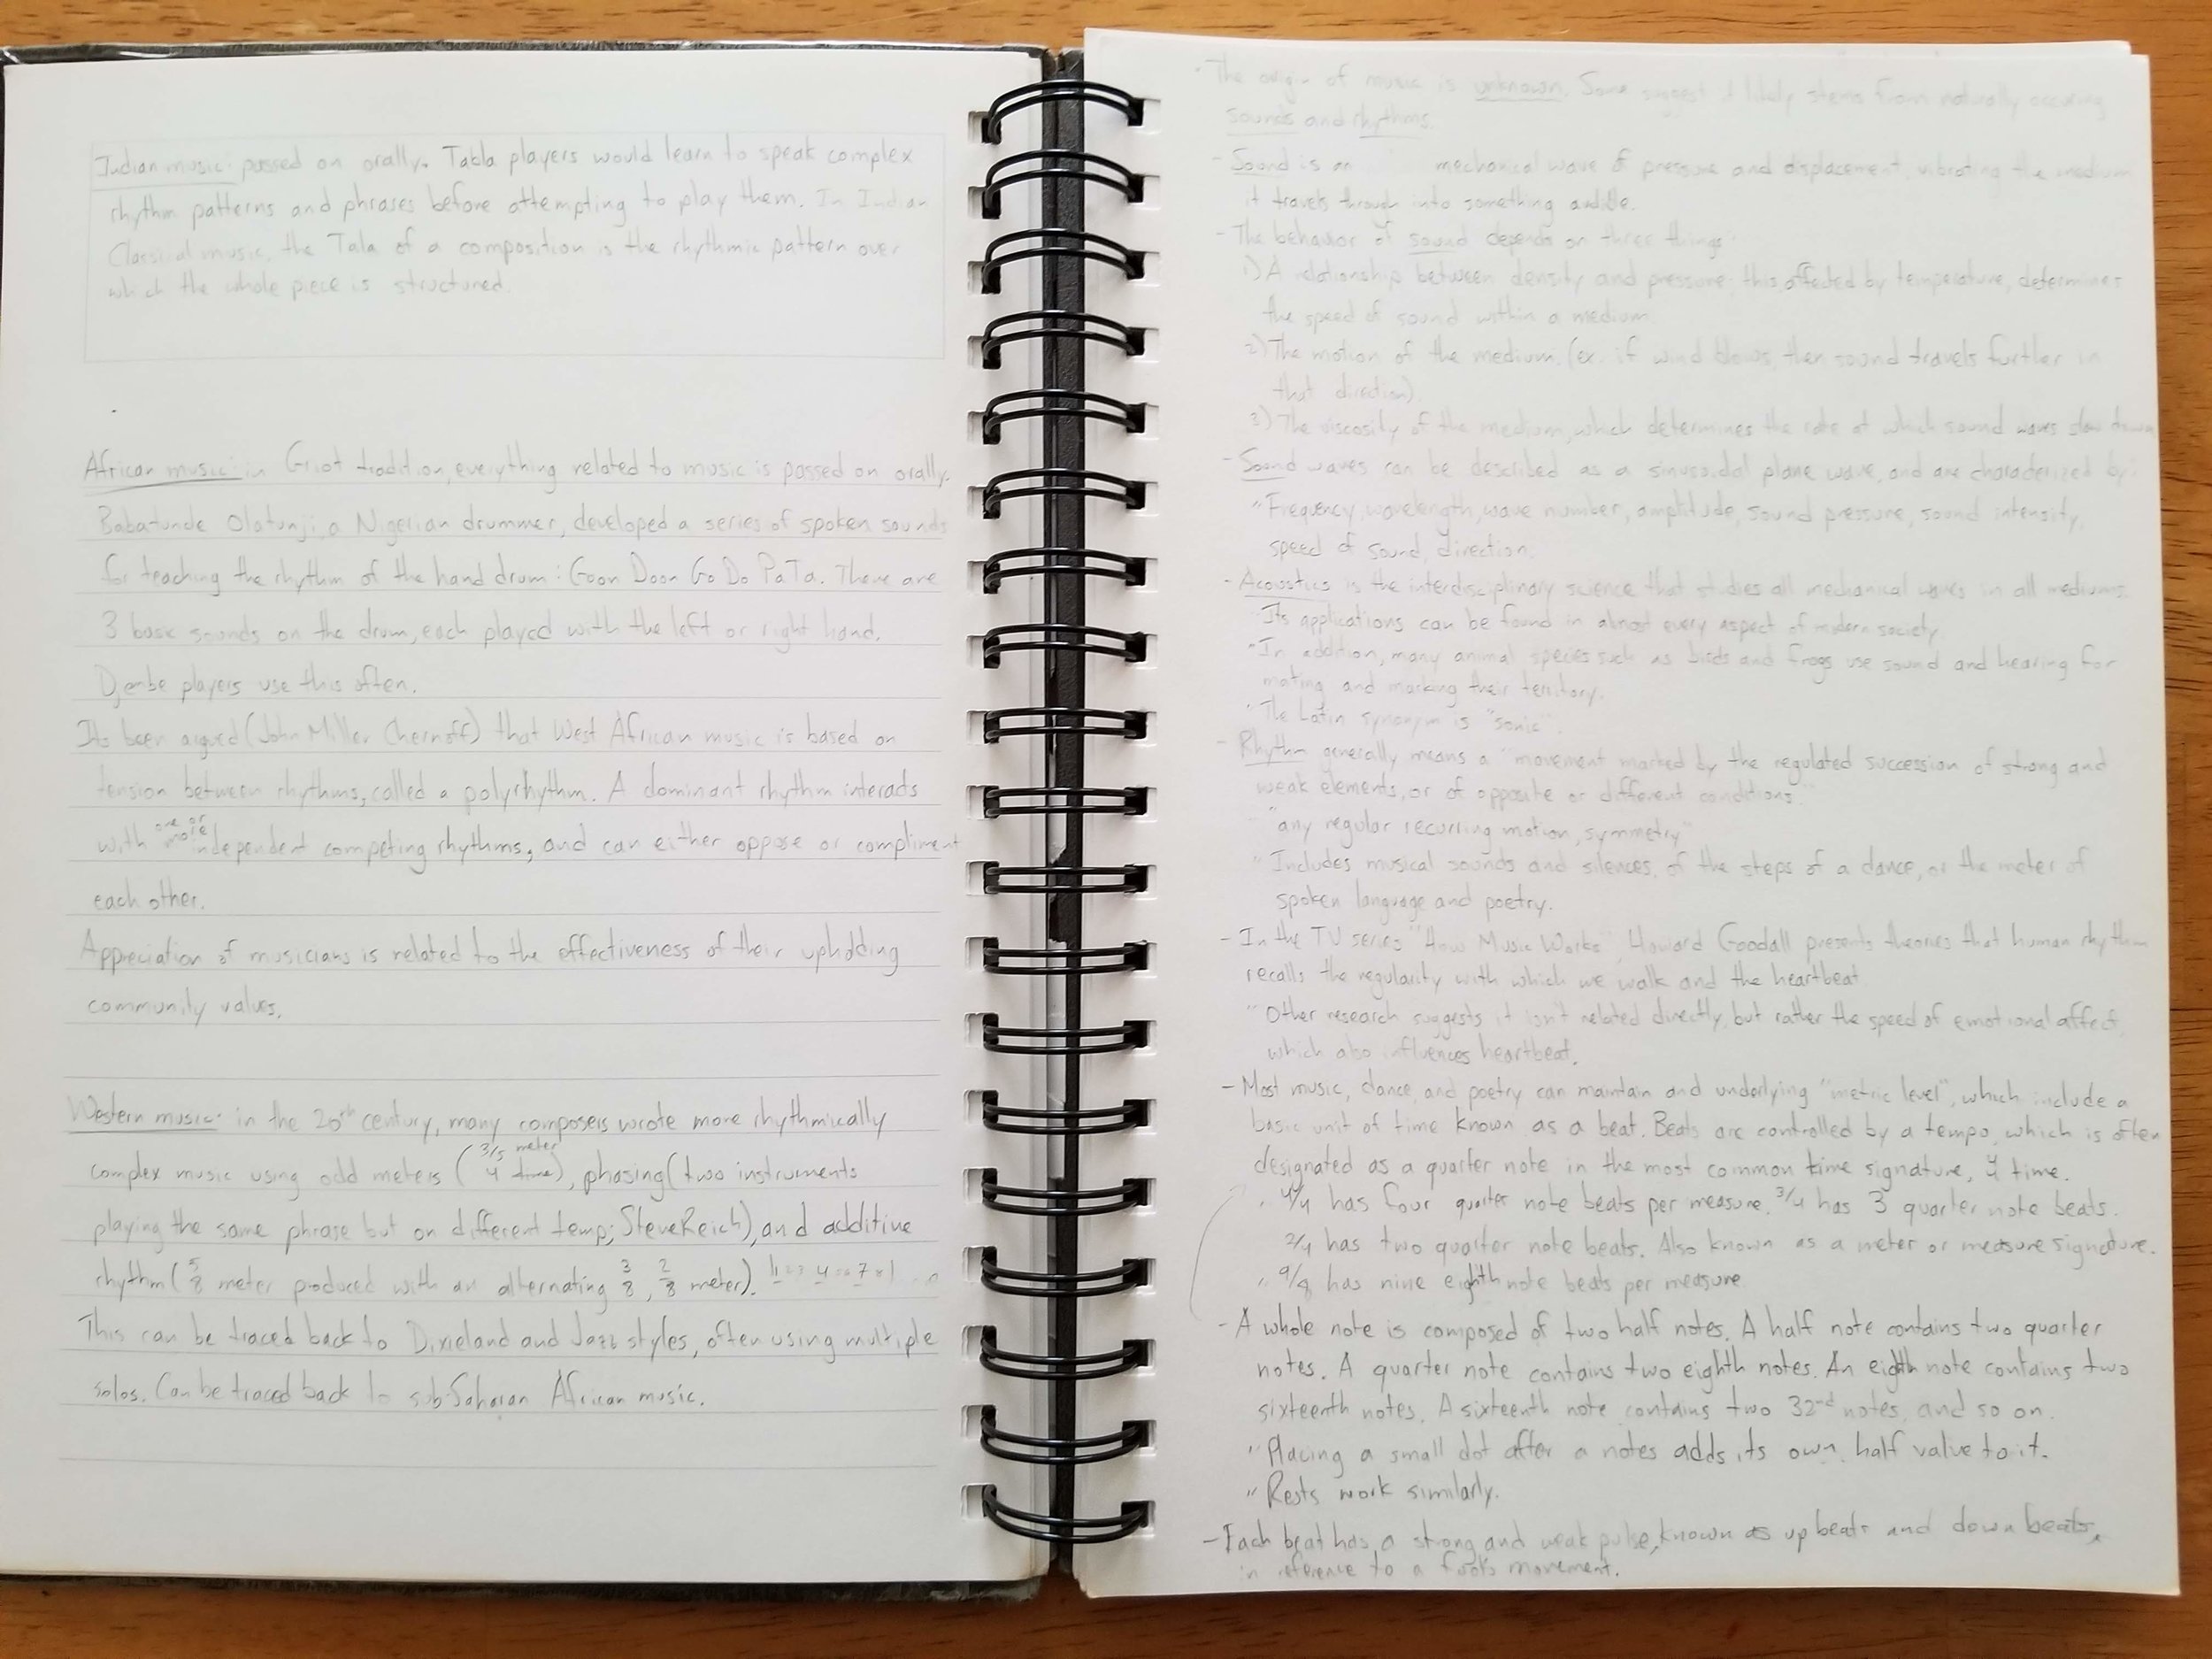 Indian music: passed on orally. Tabla players would learn to speak complex
rhythm patterns and phrases before attempting to play them. In Indian
Classical music, the Tala of a composition is the rhythmic pattern over
which the whole piece is structured.
African music: in Griot tradition, everything related to music is passed on orally.
Babatunde Olatunji, a Nigerian drummer, developed a series of spoken sounds
for teaching the rhythm of the hand drum: Goon Doon Go Do Pa Ta. There are
3 basic sounds on the drum, each played with the left or right hand.
Djembe players use this often.
Its been argued (John Miller Chernoff) that West African music is based on
tension between rhythms, called a polyrhythm. A dominant rhythm interacts
with one or more independent competing rhythms, and can either oppose or compliment
each other.
Appreciation of musicians is related to the effectiveness of their upholding
community values.
Western music: in the 20th century, many composers wrote more rhythmically
complex music using odd meters (3/5 meter 4 time), phasing (two instruments
playing the same phrase but on different temp; Steve Reich), and additive
rhythm (5/8 meter produced with an alternating 3/8, 2/8 meter).
This can be traced back to Dixieland and Jazz styles, often using multiple
solos. Can be traced back to sub-Saharan African music.
· The origin of music is unknown. Some suggest it likely stems from naturally occuring
sounds and rhythms.
- Sound is an mechanical wave of pressure and displacement, vibrating the medium
it travels through into something audible.
- The behavior of sound depends on three things:
1) A relationship between density and pressure; this, affected by temperature, determines
the speed of sound within a medium.
2) The motion of the medium. (ex. if wind blows, then sound travels further in
that direction).
3) The viscosity of the medium, which determines the rate at which sound waves slow down
- Sound waves can be described as a sinusoidal plane wave, and are characterized by:
" Frequency, wavelength, wave number, amplitude, sound pressure, sound intensity,
speed of sound, direction.
- Acoustics is the interdisciplinary science that studies all mechanical waves in all mediums.
" Its applications can be found in almost every aspect of modern society
" In addition, many animal species such as birds and frogs use sound and hearing for
mating and marking their territory.
" The Latin synonym is "sonic".
- Rhythm generally means a "movement marked by the regulated succession of strong and
weak elements, or of opposite or different conditions."
- "any regular recurring motion, symmetry"
" Includes musical sounds and silences, of the steps of a dance, or the meter of
spoken language and poetry.
- In the TV series "How Music Works", Howard Goodall presents theories that human rhythm
recalls the regularity with which we walk and the heartbeat
" Other research suggests it isn't related directly, but rather the speed of emotional affect,
which also influences heartbeat.
- Most music, dance and poetry can maintain and underlying "metric level", which include a
basic unit of time known as a beat. Beats are controlled by a tempo, which is often
designated as a quarter note in the most common time signature, 4 time.
" 4/4 has four quarter note beats per measure. 3/4 has 3 quarter note beats.
2/4 has two quarter note beats. Also known as a meter or measure signature.
" 9/8 has nine eighth note beats per measure
- A whole note is composed of two half notes. A half note contains two quarter
notes. A quarter note contains two eighth notes. An eighth note contains two
sixteenth notes. A sixteenth note contains two 32nd notes, and so on.
" Placing a small dot after a notes adds its own half value to it.
" Rests work similarly.
- Each beat has a strong and weak pulse, known as up beats and down beats,
in reference to a foot's movement.